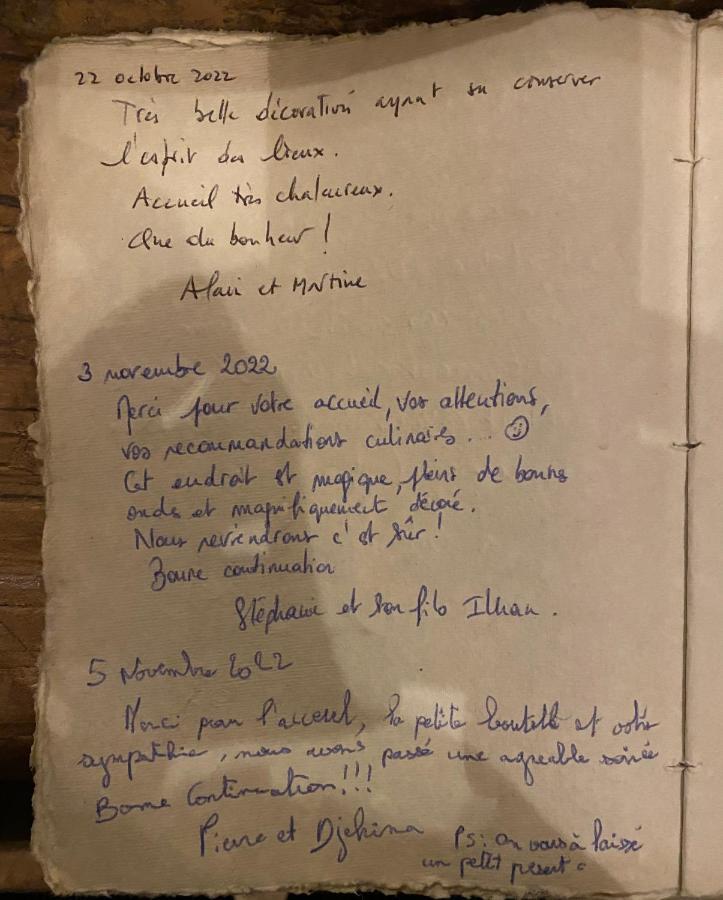 22 octobre 2022
Très belle décoration ayant su conserver
l'esprit des lieux.
Accueil très chaleureux.
Que du bonheur !
Alain et Martine
3 novembre 2022
Merci pour votre accueil, vos attentions,
vos recommandations culinaires... ☺
Cet endroit est magique, pleins de bonnes
ondes et magnifiquement décoré.
Nous reviendrons c'est sûr !
Bonne continuation
Stéphanie et son fils Ilhan.
5 Novembre 2022
Merci pour l'acceuil, la petite bouteille et votre
sympathie, nous avons passé une agréable soirée
Bonne Continuation!!!
Pierre et Djehina
Ps: On vous à laissé
un petit présent